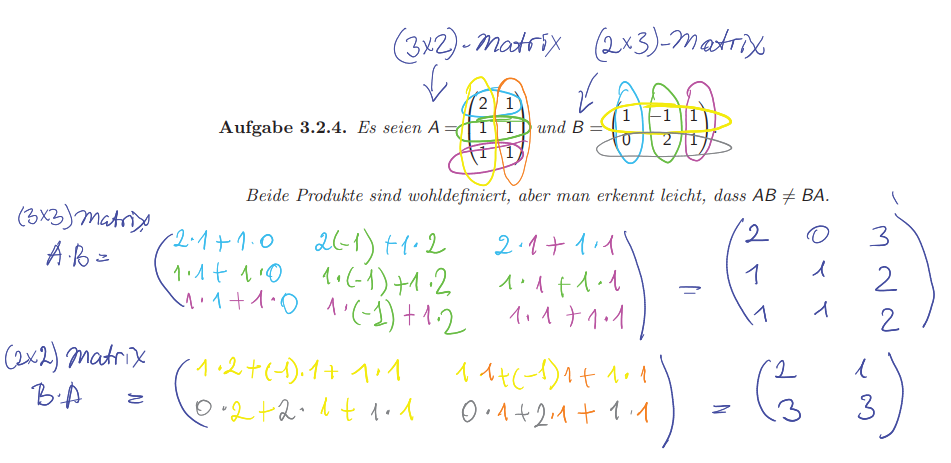 (3x2)-Matrix (2x3)-Matrix
Aufgabe 3.2.4. Es seien A = (2 1
1 1
1 1) und B = (1 -1 1
0 2 1).
Beide Produkte sind wohldefiniert, aber man erkennt leicht, dass AB ≠ BA.
(3x3) Matrix
A·B = (2·1+1·0 2(-1)+1·2 2·1+1·1
1·1+1·0 1·(-1)+1·2 1·1+1·1
1·1+1·0 1·(-1)+1·2 1·1+1·1) = (2 0 3
1 1 2
1 1 2)
(2x2) Matrix
B·A = (1·2+(-1)·1+1·1 1 1+(-1)1+1·1
0·2+2·1+1·1 0·1+2·1+1·1) = (2 1
3 3)